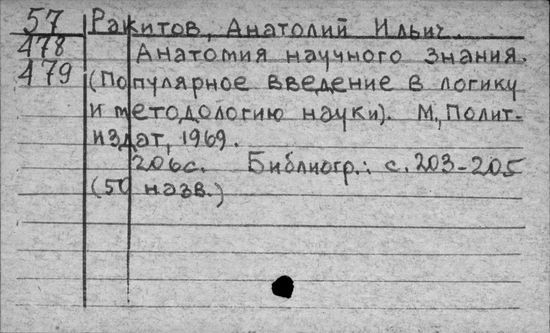 57 Ракитов, Анатолий Ильич.
478 Анатомия научного знания.
479 (Популярное введение в логику
и методологию науки). М., Полит-
издат, 1969.
206с. Библиогр.: с. 203-205
(50 назв.)